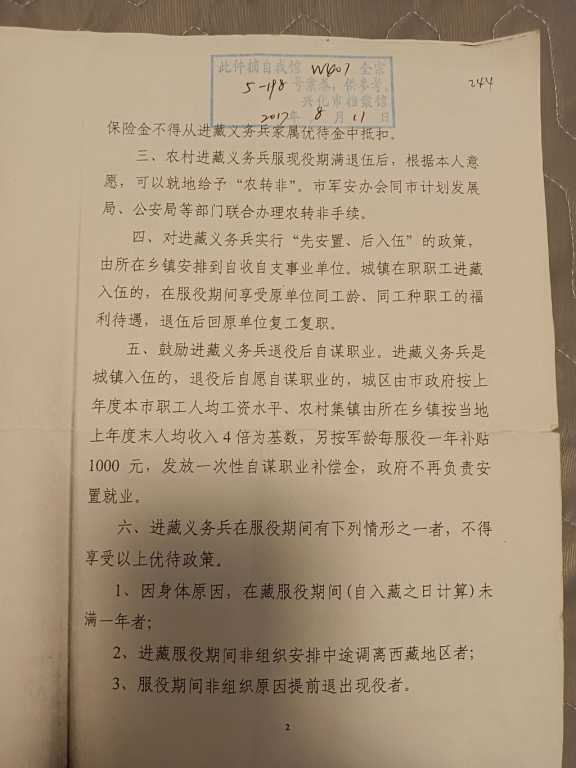 此件摘自我馆 W407 全宗
5-198 号案卷，供参考。
兴化市档案馆
2017年 8 月 11 日
244
保险金不得从进藏义务兵家属优待金中抵扣。
三、农村进藏义务兵服现役期满退伍后，根据本人意
愿，可以就地给予“农转非”。市军安办会同市计划发展
局、公安局等部门联合办理农转非手续。
四、对进藏义务兵实行“先安置、后入伍”的政策，
由所在乡镇安排到自收自支事业单位。城镇在职职工进藏
入伍的，在服役期间享受原单位同工龄、同工种职工的福
利待遇，退伍后回原单位复工复职。
五、鼓励进藏义务兵退役后自谋职业。进藏义务兵是
城镇入伍的，退役后自愿自谋职业的，城区由市政府按上
年度本市职工人均工资水平、农村集镇由所在乡镇按当地
上年度末人均收入 4 倍为基数，另按军龄每服役一年补贴
1000 元，发放一次性自谋职业补偿金，政府不再负责安
置就业。
六、进藏义务兵在服役期间有下列情形之一者，不得
享受以上优待政策。
1、因身体原因，在藏服役期间(自入藏之日计算)未
满一年者；
2、进藏服役期间非组织安排中途调离西藏地区者；
3、服役期间非组织原因提前退出现役者。
2